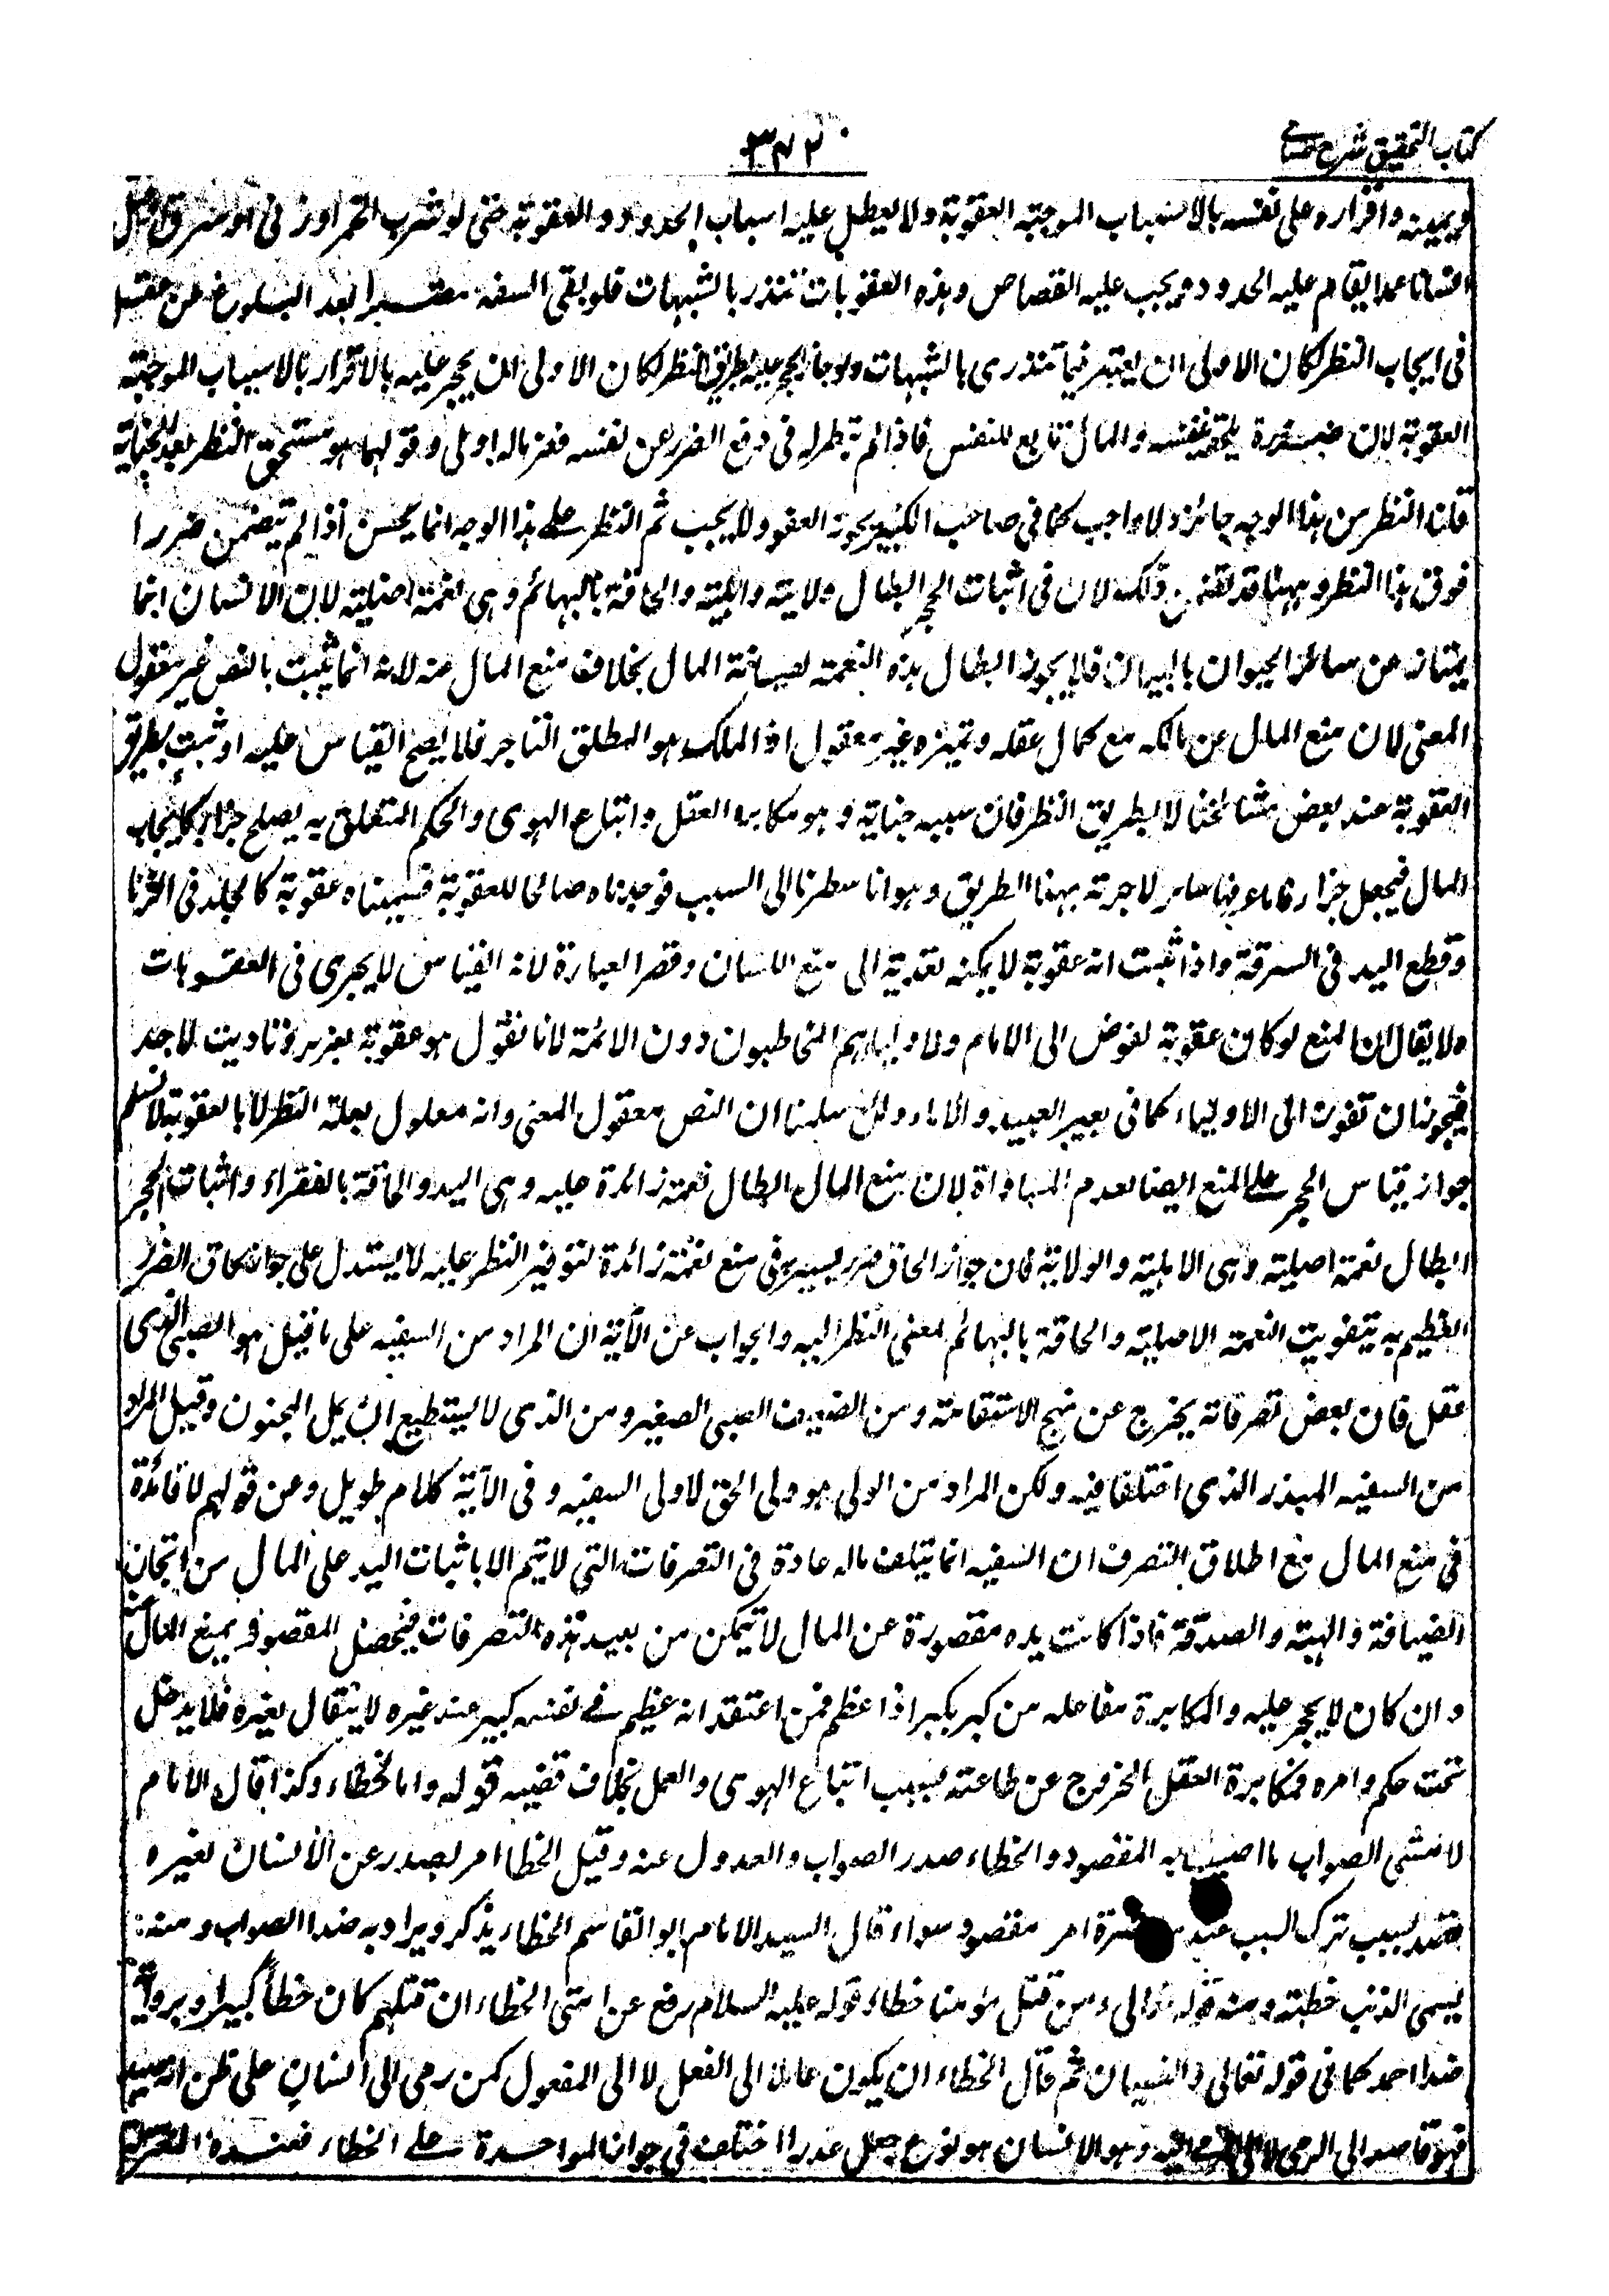 كتاب التحقيق شرح حسامي
٣٤٢
ويمينه واقراره على نفسه بالاسباب الموجبة العقوبة ولا يعطل عليه اسباب الحدود والعقوبة حتى لو شرب الخمر او زنى او سرق او قتل
انسانا عمدا يقام عليه الحدود ويجب عليه القصاص وهذه العقوبات تندرئ بالشبهات فلو بقى السفه معتبرا بعد البلوغ عن عقل
فى ايجاب النظر لكان الاولى ان يعتبر فيما تندرى بالشبهات ولو جاز الحجر عليه بطريق النظر لكان الاولى ان يحجر عليه بالاقرار بالاسباب الموجبة
العقوبة لان ضرره يلحق بنفسه والمال تابع للنفس فاذا لم ينظر له فى دفع الضرر عن نفسه فعن ماله اولى وقولهما هو مستحق النظر بعد الجناية
قلنا النظر من هذا الوجه جائز ولا واجب كما فى صاحب الكبيرة يجوز العفو ولا يجب ثم النظر على هذا الوجه انما يحسن اذا لم يتضمن ضررا
فوق هذا النظر وههنا قد تضمن ذلك لان فى اثبات الحجر ابطال ولايته واهليته والحاقه بالبهائم وهى نعمة اصلية لان الانسان انما
يمتاز من سائر الحيوان بالبيان فلا يجوز ابطال هذه النعمة لصيانة المال بخلاف منع المال منه لانه انما يثبت بالنص غير معقول
المعنى لان منع المال عن مالكه مع كمال عقله وتميزه غير معقول اذ الملك هو المطلق الحاجز فلا يصح القياس عليه او ثبت بطريق
العقوبة عند بعض مشائخنا لا بطريق النظر فان سببه جناية وهو مكابرة العقل واتباع الهوى والحكم المتعلق به يصلح جزاء كايجاب
المال فيجعل جزاء لاجرته بهذا الطريق وهو انا نظرنا الى السبب فوجدناه صالحا للعقوبة فسميناه عقوبة كالجلد فى الزنا
وقطع اليد فى السرقة واذا ثبت انه عقوبة لا يمكنه تعديته الى منع اللسان وقصر العبارة لانه القياس لا يجرى فى العقوبات
ولا يقال ان المنع لو كان عقوبة لفوض الى الامام والاولياء هم المخاطبون دون الائمة لانا نقول هو عقوبة تعزير وتاديب لا حد
فيجوز ان تفوت الى الاولياء كما فى تعزير العبيد والاماء ولئن سلمنا ان النص معقول المعنى وانه معلول بعلة النظر لا بالعقوبة لا نسلم
جواز قياس الحجر على المنع ايضا لعدم المساواة لان منع المال ابطال نعمة زائدة عليه وهى اليد والحاقه بالفقراء واثبات الحجر
ابطال نعمة اصلية وهى الاهلية والولاية فان جواز الحاق ضرر يسير فى منع نعمة زائدة لتوفير النظر عليه لا يستدل على جواز الحاق الضرر
العظيم به بتفويت النعمة الاصلية والحاقه بالبهائم لمعنى النظر اليه والجواب عن الآية ان المراد من السفيه على ما قيل هو الصبى الذى
عقل فان بعض تصرفاته يخرج عن نهج الاستقامة ومن الضعيف الصبى الصغير ومن الذى لا يستطيع ان يمل المجنون وقيل المراد
من السفيه المبذر الذى اختلفا فيه ولكن المراد من الولى هو ولى الحق لا ولى السفيه وفى الآية كلام طويل وعن قولهم لا فائدة
فى منع المال مع اطلاق التصرف ان السفيه انما يتلف ماله عادة فى التصرفات التى لا يتم الا باثبات اليد على المال من اتخاذ
الضيافة والهبة والصدقة فاذا كانت يده مقصورة عن المال لا يتمكن من بعيد هذه التصرفات فيحصل المقصود بمنع المال منه
وان كان لا يحجر عليه والمكابرة مفاعلة من كبر يكبر اذا عظم فمن اعتقد انه عظيم فى نفسه كبير عند غيره لا ينقاد لغيره فلا يدخل
تحت حكم وامره فمكابرة العقل الخروج عن طاعته بسبب اتباع الهوى والعمل بخلاف قضيته قوله واما الخطاء وكذا قال الامام
لا مشى الصواب ما اصيب به المقصود والخطاء ضد الصواب والعدول عنه وقيل الخطا امر يصدر عن الانسان لغيره
قصد بسبب ترك السبب عند امر مقصود سواه قال السيد الامام ابو القاسم الخطاء يذكر ويراد به ضد الصواب ومنه
يسمى الذنب خطيئة ومنه قوله تعالى ومن قتل مؤمنا خطاء قوله عليه السلام رفع عن امتى الخطاء ان قتلهم كان خطأ كبيرا ويراد به
ضد العمد كما فى قوله تعالى والنسيان ثم قال الخطاء ان يكون عامدا الى الفعل لا الى المفعول كمن رمى الى انسان على ظن انه صيد
فهو قاصد الى الرمى لا الى المرمى اليه وهو الانسان هو نوع جعل عذرا اختلف فى جواز المواخذة على الخطاء فعند المعتزلة